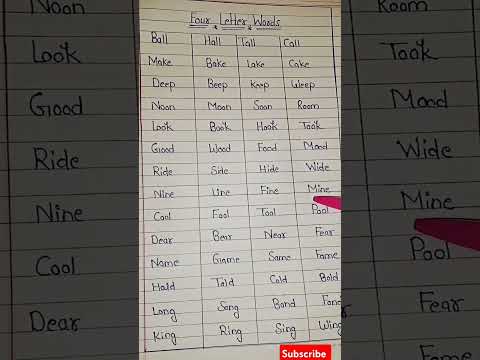 Four Letter Words
Ball Hall Tall Call
Make Bake Lake Cake
Deep Beep Keep Weep
Noon Moon Soon Room
Look Book Hook Took
Good Wood Food Mood
Ride Side Hide Wide
Nine Line Fine Mine
Cool Fool Tool Pool
Dear Bear Near Fear
Name Game Same Fame
Hold Told Cold Bold
Long Song Bond
King Ring Sing Wing
Subscribe
Noon
Look
Good
Ride
Nine
Cool
Dear
Room
Took
Mood
Wide
Mine
Pool
Fear